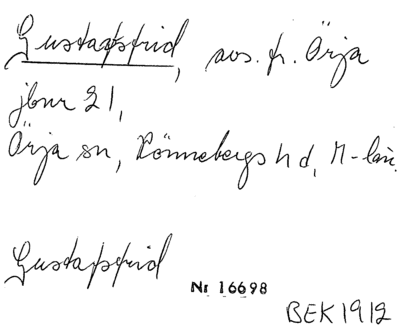 Gustafsfrid, avs. fr. Örja
jbnr 21,
Örja sn, Rönnebergs hd, M-län.
Gustafsfrid
Nr 16698
BEK 1912